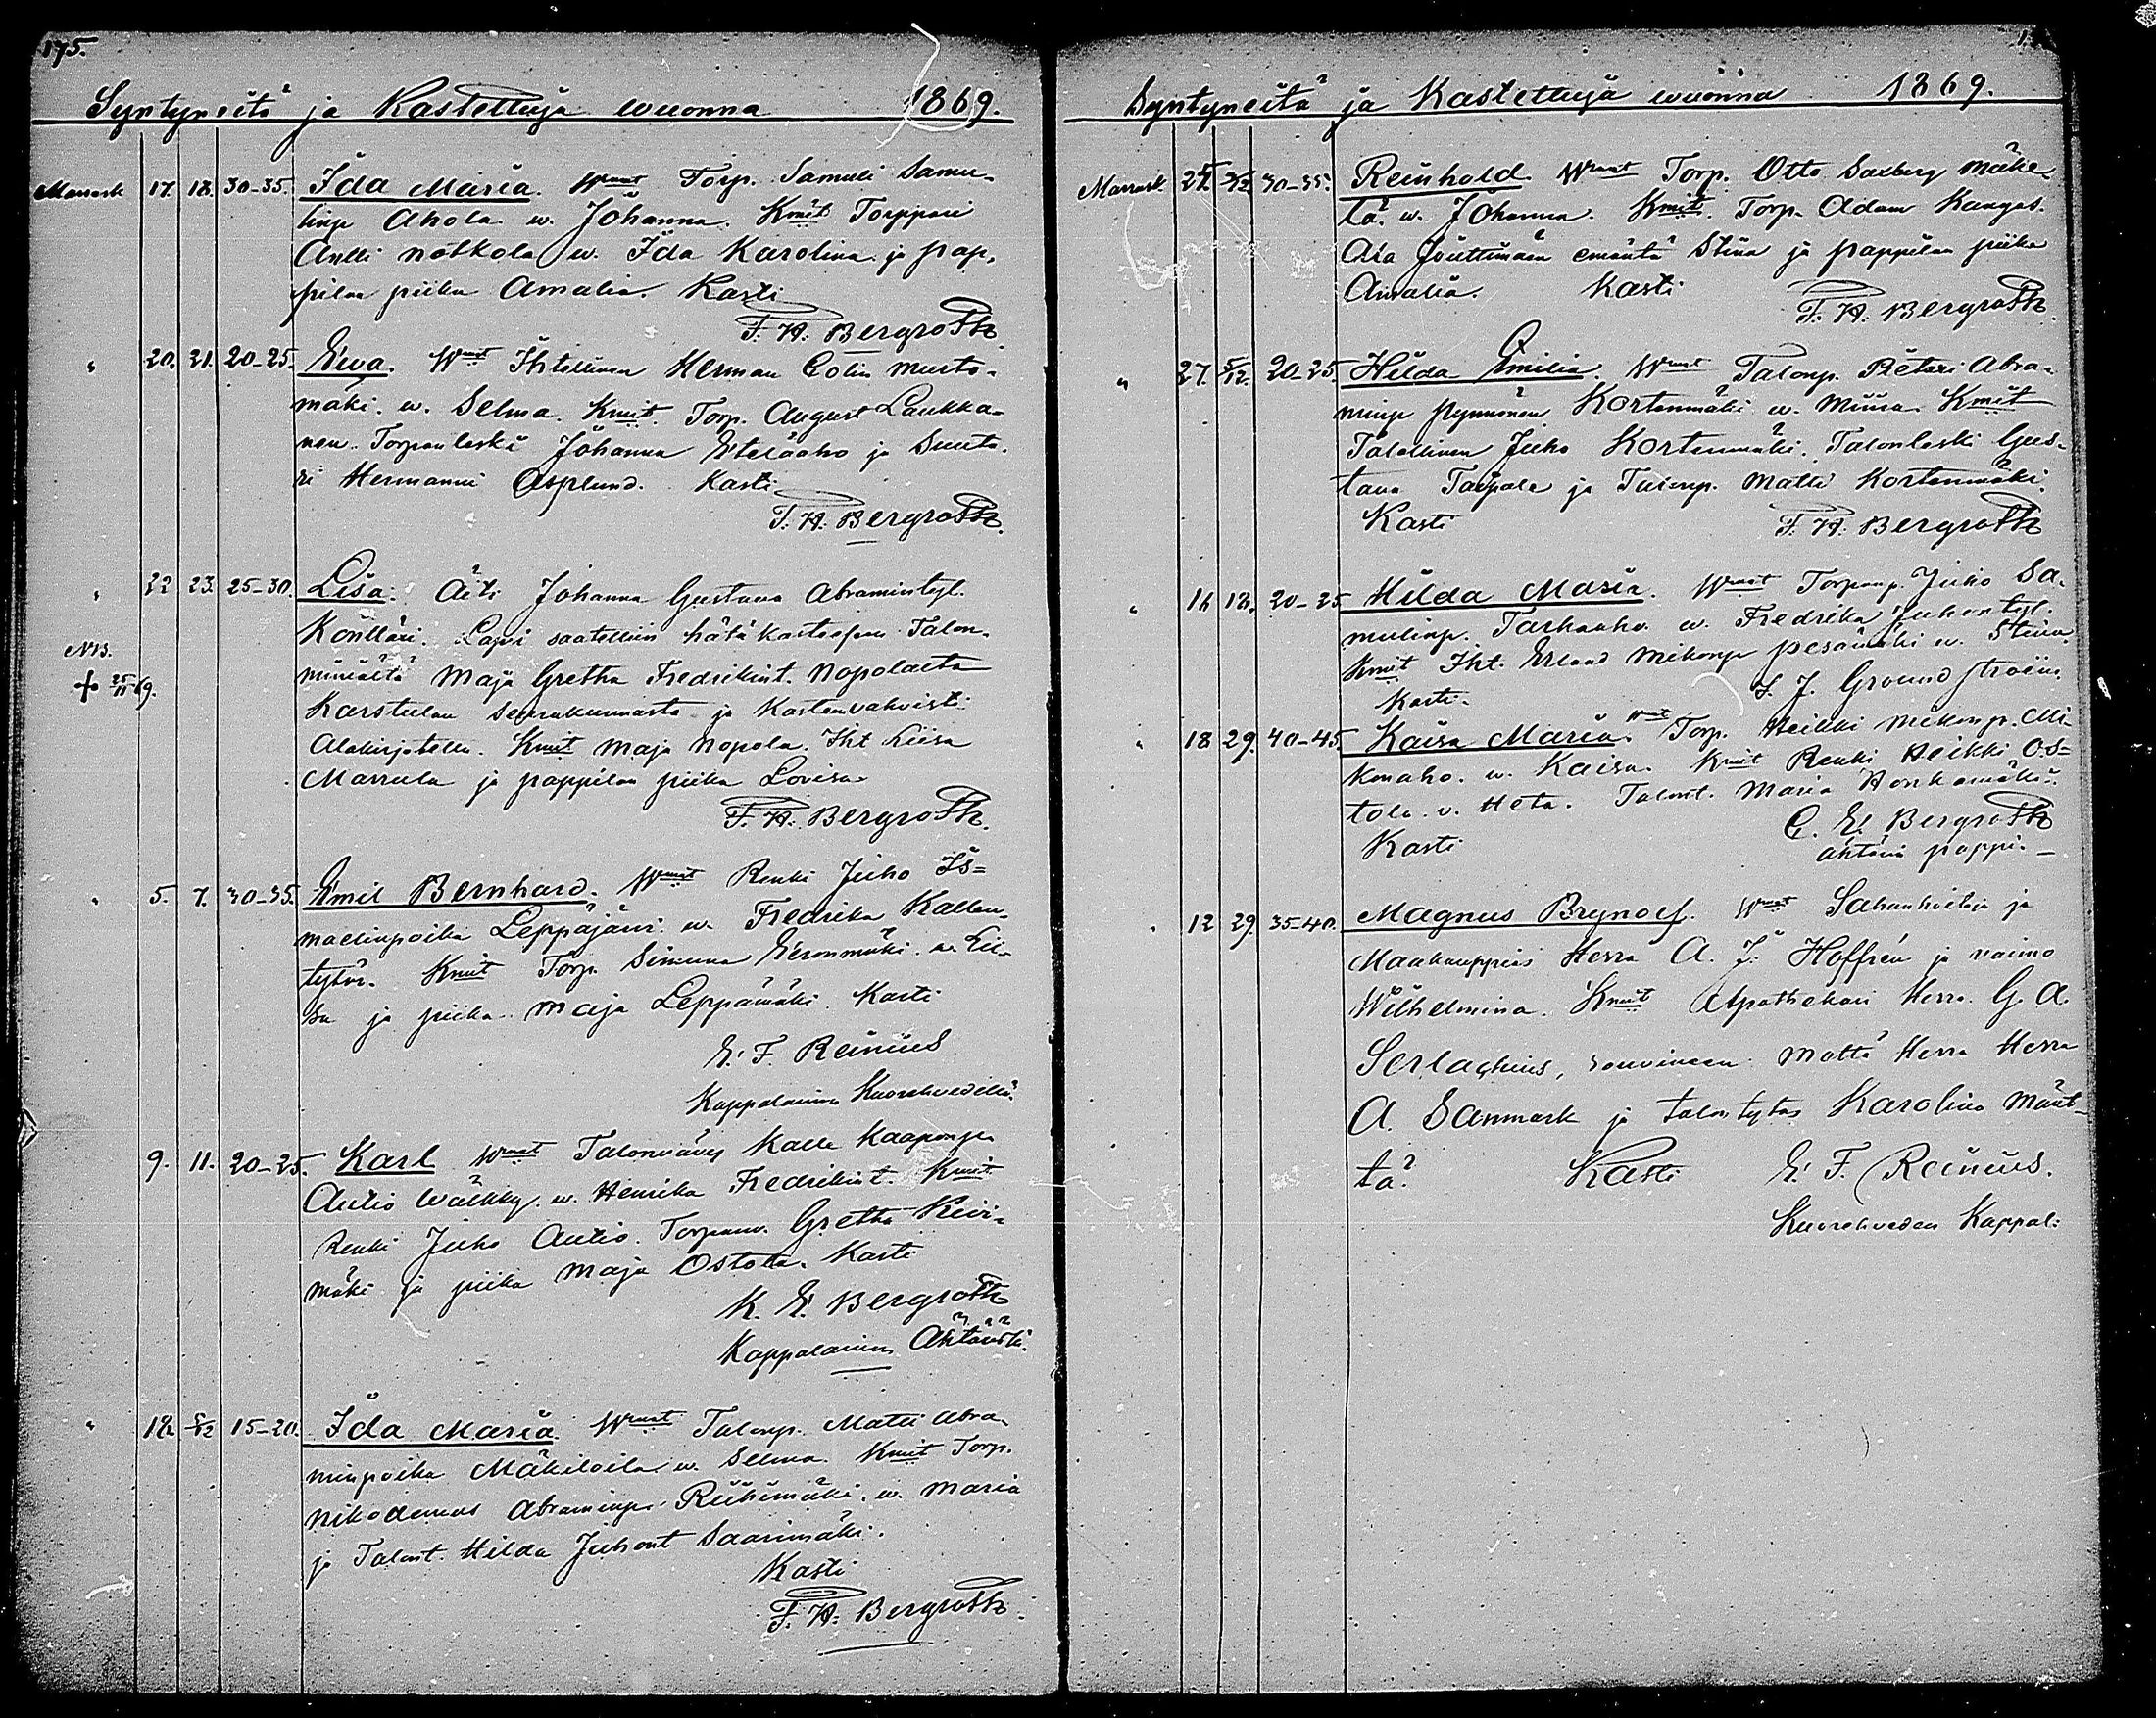 175.
Syntyneitä ja Kastettuja wuonna 1869.
Marrask 17. 18. 30-35. Ida Maria. Wmat Torp. Samuli Samu-
linp Ahola w. Johanna. Kmit Torppari
Antti Notkola w. Ida Karolina ja pap-
pilan piika Amalia. Kasti
F. H. Bergroth.
" 20. 21. 20-25. Ewa. Wmat Ihtellinen Herman Colin Musto-
mäki. w. Selma. Kmit. Torp. August Laukka-
nen. Torpanleski Johanna Eteläaho ja Suuta-
ri Hermanni Asplund. Kasti
F. H. Bergroth.
" 22 23. 25-30. Lisa. Äiti Johanna Gustava Abramintyt.
Könttäri. Lapsi saatettiin hätäkasteesen Talon-
NB. miniältä Maja Gretha Fredrikint. Nopolaeta
+ 25/11 69. Karstulan seurakunnasta ja Kastenvahvisti
Allekirjotettu. Kmit Maja Nopola. Iht Liisa
Marrula ja pappilan piika Lovisa
F. H. Bergroth.
" 5. 7. 30-35. Emil Bernhard. Wmat Renki Juho Is=
maelinpoika Leppäjärwi. w. Fredrika Kallen-
tytör. Kmit Torp. Simuna Eeronmäki. w. Lii-
sa ja piika Maja Leppämäki. Kasti
E. F. Reinius
Kappalainen Kuorehvedellä.
9. 11. 20-25. Karl Wmat Talonvävy Kalle Kaaponp.
Autio Wälkky. w. Henrika Fredrikint. Kmit
Renki Juho Autio. Torpanw. Gretha Kivi-
mäki ja piika Maja Ostola. Kasti
K. E. Bergroth
Kappalainen Ähtäristä.
" 18. 5/12 15-20. Ida Maria. Wmat Talonp. Matti Abra-
minpoika Mäkiloila w. Selma. Kmit Torp.
Nikodemus Abraminp. Riihimäki. w. Maria
ja Talont. Hilda Juhont Saarimäki.
Kasti
F. H. Bergroth.
Syntyneitä ja Kastettuja wuonna 1869.
Marrask 30-35. Reinhold. Wmat Torp. Otto Saxberg Mäke-
lä. w. Johanna. Kmit. Torp. Adam Kangas.
Ala Jouttimäen emäntä Stina ja pappilan piika
Amalia. Kasti
F. H. Bergroth.
" 27. 5/12. 20-25. Hilda Emilia. Wmat Talonp. Pietari Abra-
minp Pynnönen Kortenmäki w. Miina. Kmit
Talollinen Juho Kortenmäki. Talonleski Gus-
tava Taipale ja Talonp. Matti Kortenmäki.
Kasti F. H. Bergroth
" 16 18. 20-25 Hilda Maria. Wmat Torpanp. Juho Sa-
mulinp. Tarhaaho. w. Fredrika Juhontyt.
Kmit Iht. Erland Mikonp Pesämäki w. Stina
Kasti. I. J. Groundstroëm.
" 18 29. 40-45. Kaisa Maria. Wmat Torp. Heikki Mikonp. Mi-
konaho. w. Kaisa. Kmit Renki Heikki Os=
tola. v. Heta. Talont. Maria Honkamäki.
Kasti C. E. Bergroth
Ähtärin pappi.
" 12 29. 35-40. Magnus Brynolf. Wmat Sahanhoitaja ja
Maakauppias Herra A. J. Hoffrén ja vaimo
Wilhelmina. Kmit Apothekari Herra G. A.
Serlachius, rouvineen Mattä Herra Herra
A. Sanmark ja talontytär Karolina Mänt-
tä. Kasti E. F. Reinius.
Kuorehveden Kappal: